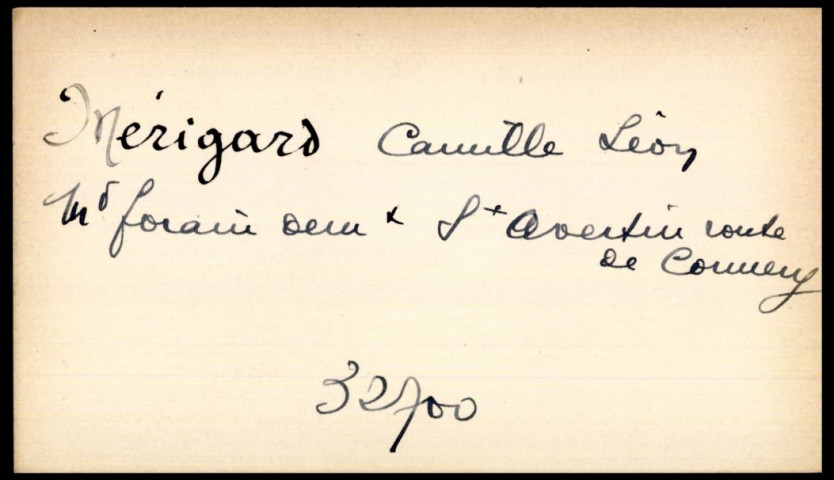 Mérigard Camille Léon
Md forain demt St Avertin route
de Cormery
32700